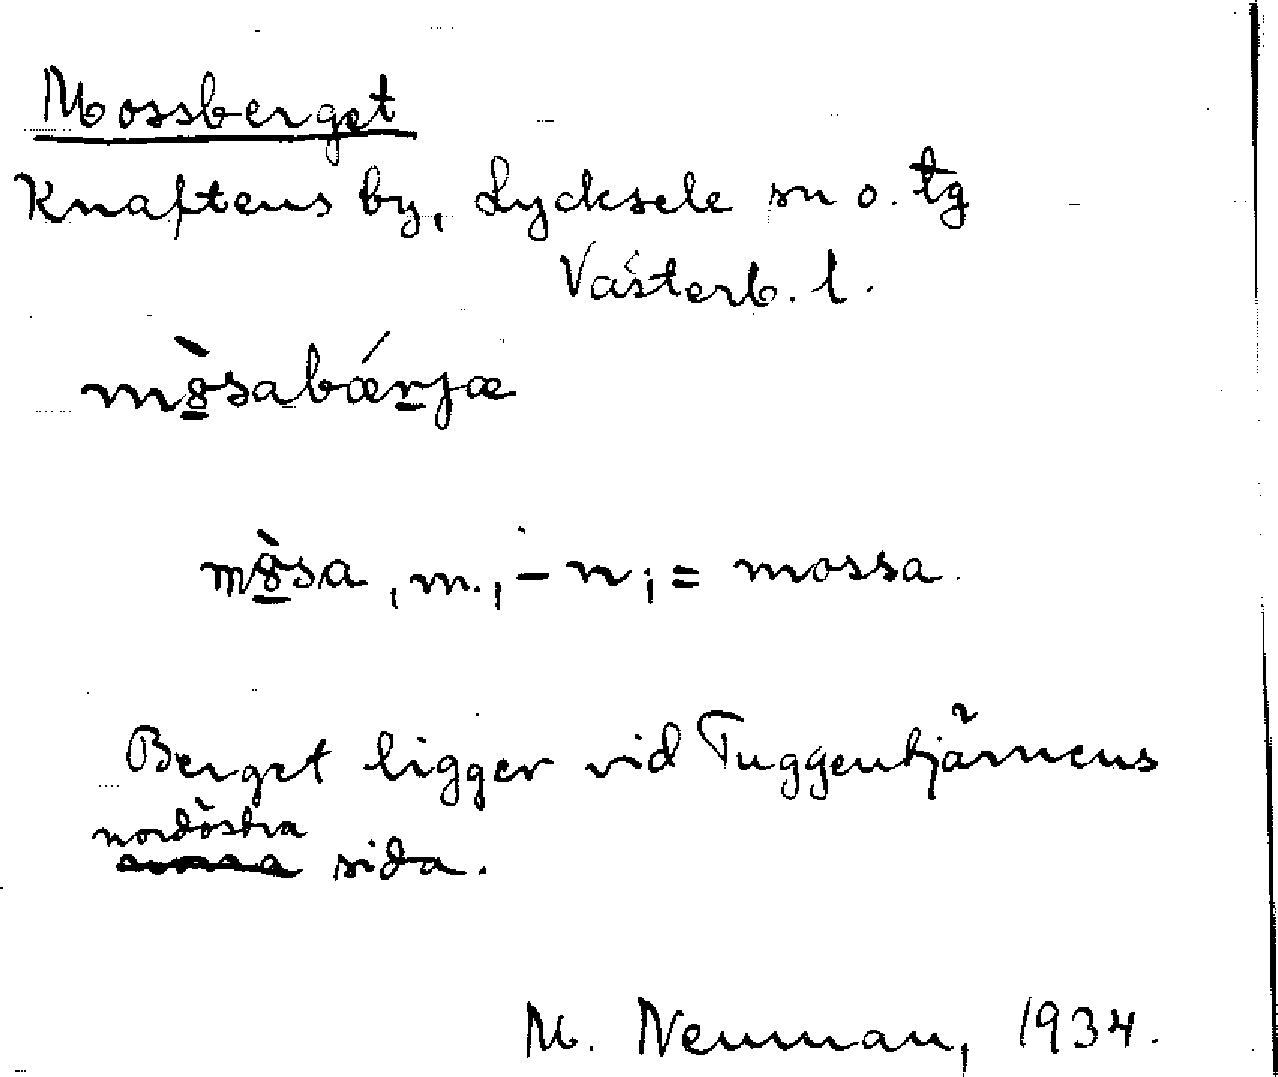 Mossberget
Knaftens by, Lycksele sn o. tg
Västerb. l.
mò̱sabáe̱rjæ
mò̱sa, m., –n; = mossa.
Berget ligger vid Tuggentjärnens
nordöstra
sida.
M. Neuman, 1934.